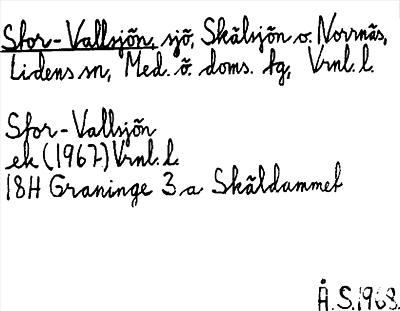 Stor-Vallsjön, sjö, Skälsjön o. Norrnäs,
Lidens sn, Med. ö. doms. tg, Vrnl. l.
Stor-Vallsjön
ek (1967) Vrnl. l.
18H Graninge 3 a Skäldammet
Å.S. 1968.